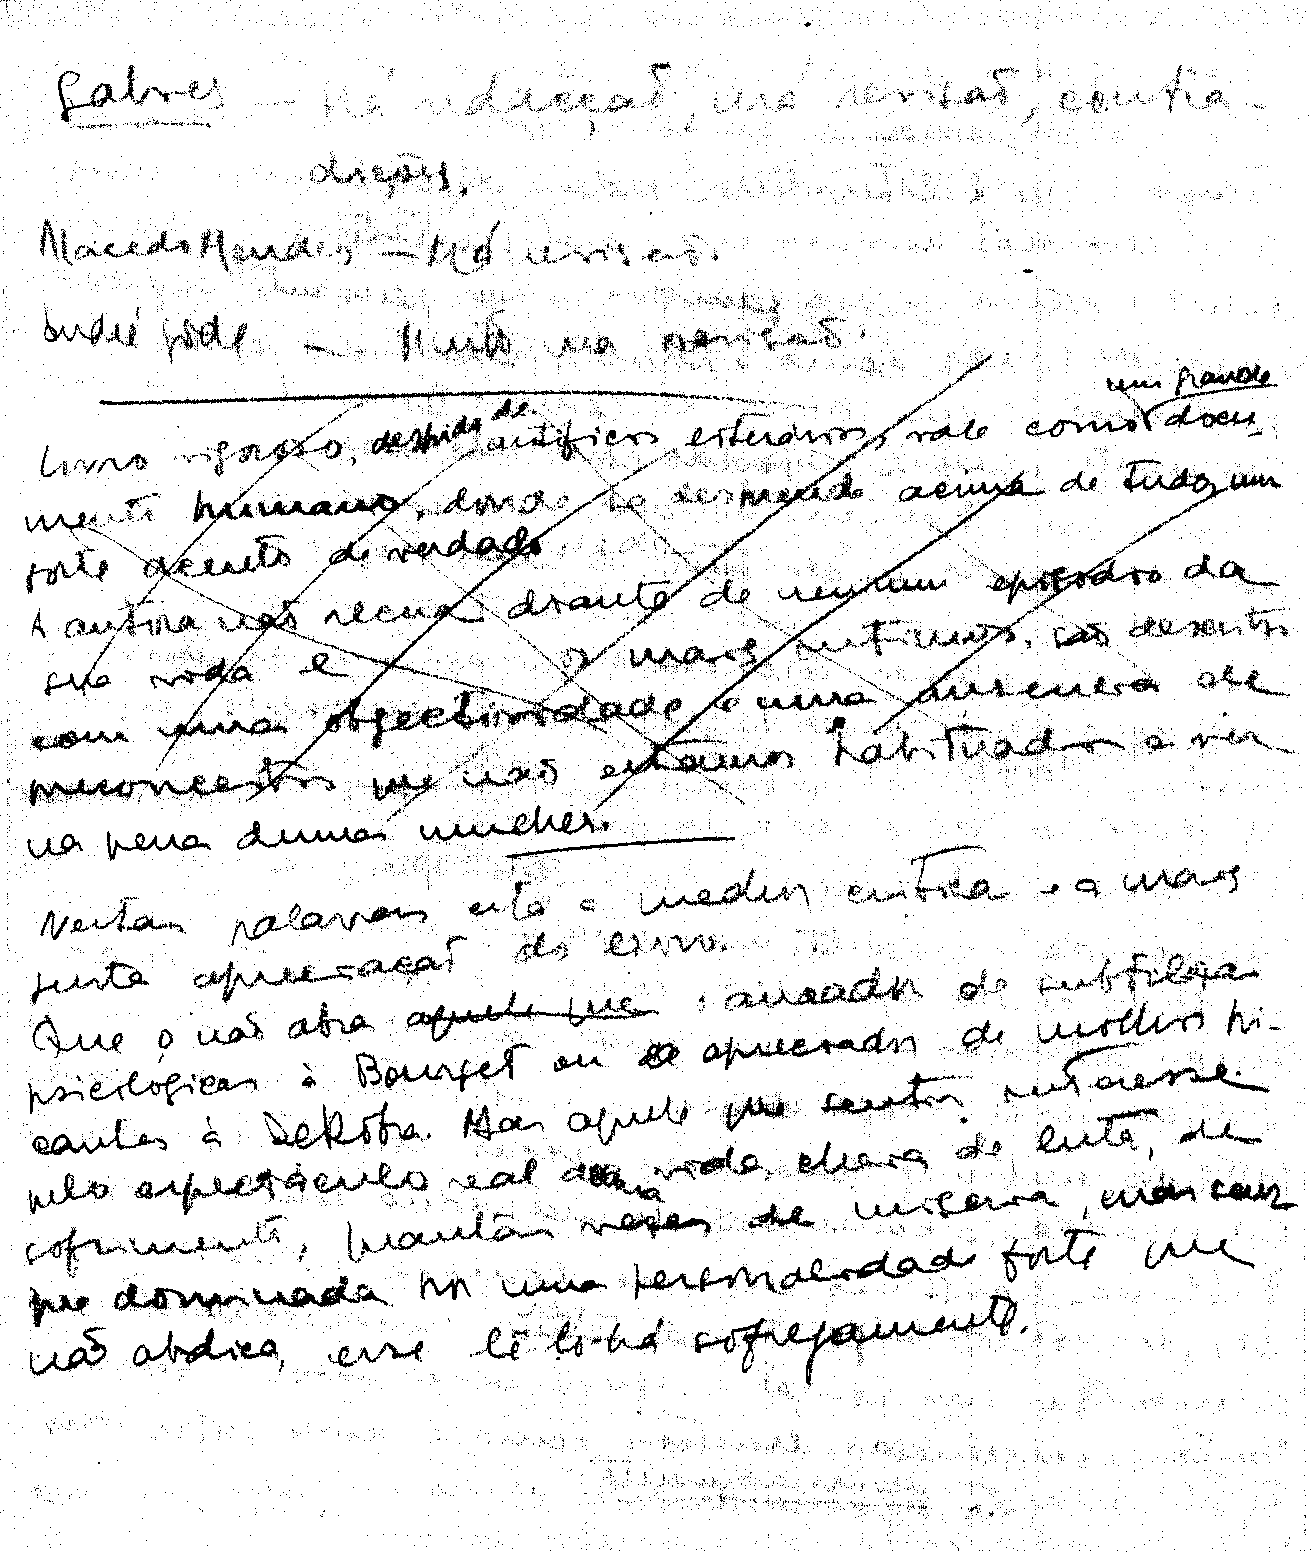 Gabriel — Má redacção, má revisão, contra-
dições.
Macedo Mendes — Má revisão.
André Gide — Muito má revisão.
um grande
Livro rigoroso, despido de artificios literários, vale como docu-
mento humano, donde se desprende acima de tudo, um
forte acento de verdade.
A autora não recua diante de nenhum episodio da
sua vida e os mais intimos, são descritos
com uma objectividade e uma ausencia de
preconceitos que não estamos habituados a ver
na pena duma mulher.
Nestas palavras está a melhor critica e a mais
justa apreciação do livro.
Que o não abra aquele que, amador de subtilezas
psicológicas à Bourget ou apreciador de molhos pi-
cantes à Dekobra. Mas aquele que sentir interesse
pelo espectáculo real duma vida, cheia de luta, de
sofrimento, muitas vezes de miseria, mas sem-
pre dominada por uma personalidade forte que
não abdica, esse lê-lo-há sofregamente.